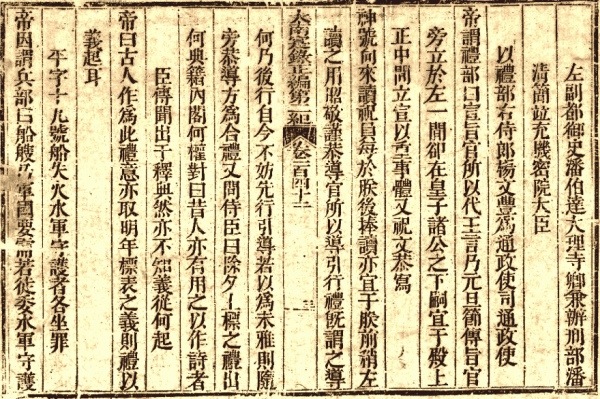 左副都御史潘伯達大理寺卿兼辦刑部潘
清簡竝充機密院大臣
以禮部右侍郎楊文豐為通政使司通政使
帝謂禮部曰宣旨官所以代王言乃元旦節傳旨官
旁立於左一間卻在皇子諸公之下嗣宜于殿上
正中間立宣以重事體又祝文恭寫
神號向來讀祝員每於朕後捧讀亦宜于朕前稍左
讀之用昭敬謹恭導官所以導引行禮旣謂之導
大南寔錄正編第二紀 卷一百四十二
何乃後行自今不妨先行引導若以為未雅則隨
旁恭導方為合禮又問侍臣曰除夕上標之禮出
何典籍內閣何權對曰昔人亦有用之以作詩者
臣傳聞出于釋典然亦不知義從何起
帝曰古人作為此禮意亦取明年標表之義則禮以
義起耳
平字十九號船失火水軍守護者各坐罪
帝因謂兵部曰船艘乃軍國要需若徒委水軍守護